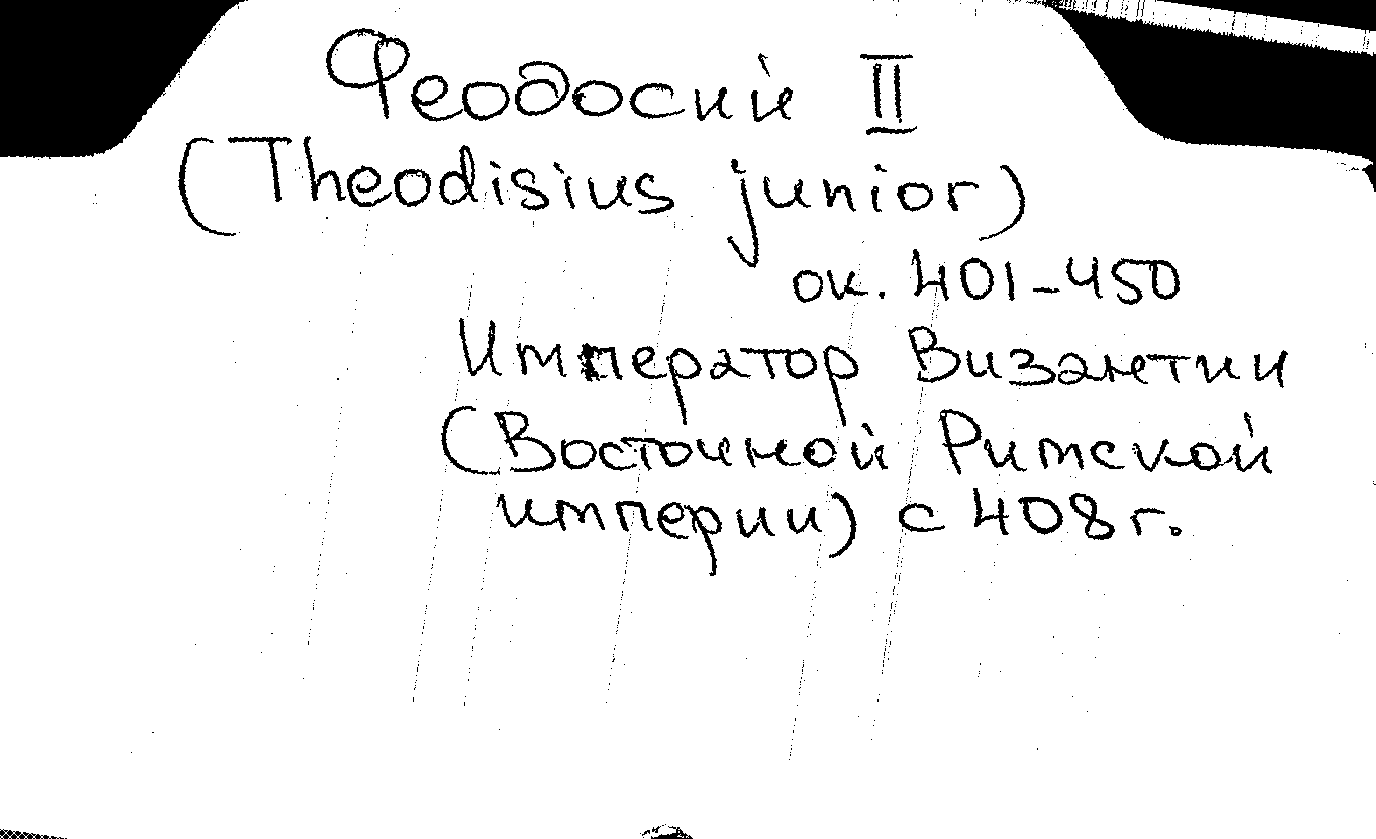 Феодосий II
(Theodisius junior)
ок. 401-450
Император Византии
(Восточной Римской
империи) с 408 г.